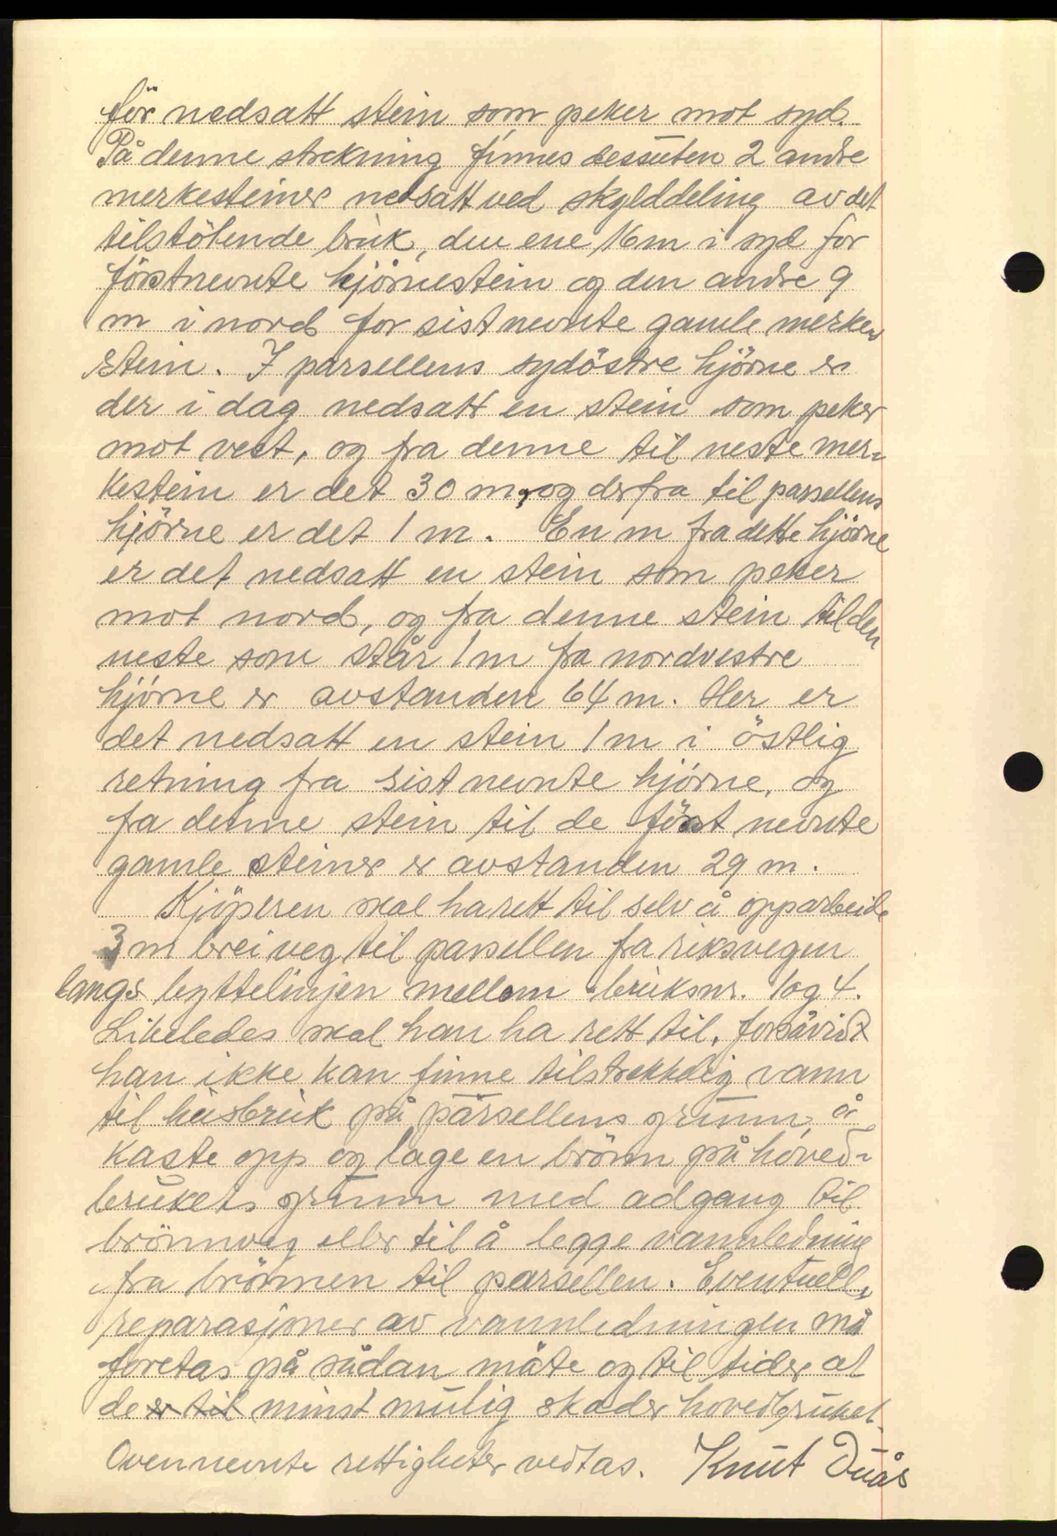 før nedsatt stein som peker mot syd.
På denne strekning finnes dessuten 2 andre
merkesteiner nedsatt ved skylddeling av det
tilstøtende bruk, den ene 16 m i syd for
førstnevnte hjørnestein og den andre 9
m i nord for sistnevnte gamle merke-
stein. I parsellens sydöstre hjörne er
der i dag nedsatt en stein som peker
mot vest, og fra denne til neste mer-
kestein er det 30 m, og derfra til parsellens
hjörne er det 1 m. En m fra dette hjörne
er det nedsatt en stein som peker
mot nord, og fra denne stein til den
neste som står 1 m fra nordvestre
hjörne er avstanden 64 m. Her er
det nedsatt en stein 1 m i östlig
retning fra sistnevnte hjörne, og
fra denne stein til de först nevnte
gamle steiner er avstanden 29 m.
Kjöperen skal ha rett til selv å opparbeide
3 m brei veg til parsellen fra riksvegen
langs byttelinjen mellom bruksnr. 1 og 4.
Likeledes skal han ha rett til, forsåvidt
han ikke kan finne tilstrekkelig vann
til husbruk på parsellens grunn, å
kaste opp og lage en brönn på hoved-
brukets grunn med adgang til
brönnveg eller til å legge vannledning
fra brönnen til parsellen. Eventuell
reparasjoner av vannledningen må
foretas på sådan måte og til tider at
de er til minst mulig skader hovedbruket.
Ovennevnte rettigheter vedtas. Knut Duås